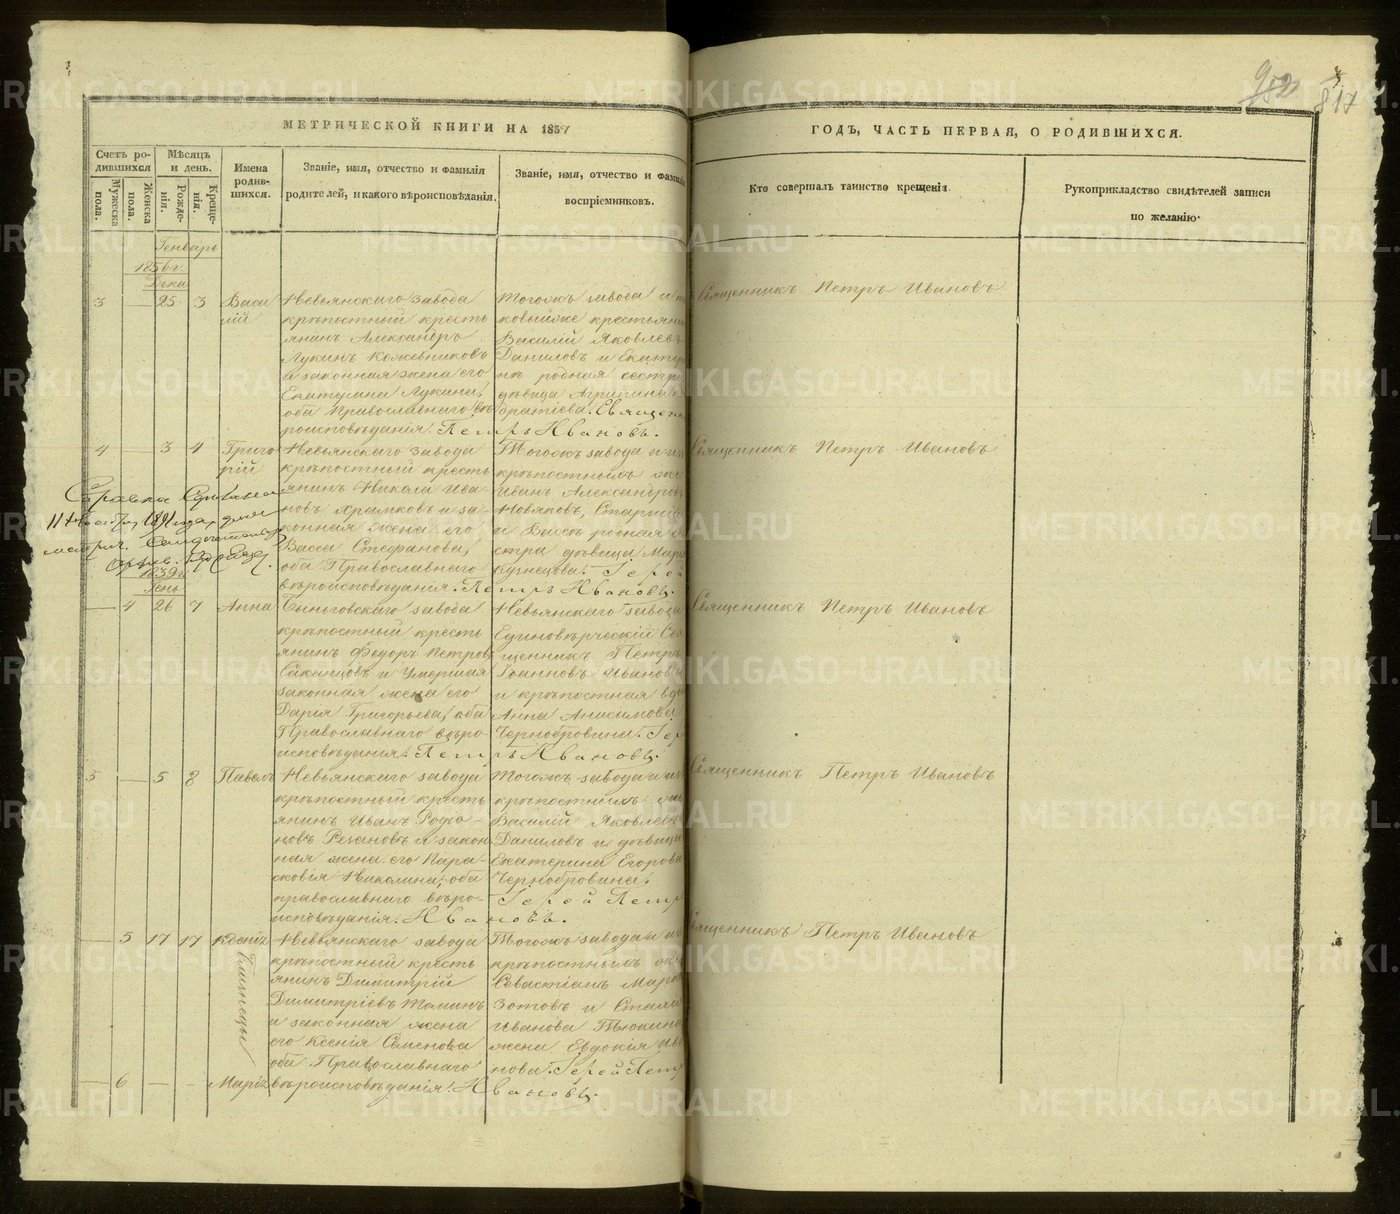 952
817
МЕТРИЧЕСКОЙ КНИГИ НА 1857
ГОДЪ, ЧАСТЬ ПЕРВАЯ, О РОДИВШИХСЯ.
Счетъ ро-
дившихся
Мужеска пола.
Женска пола.
Мѣсяцъ и день.
Рожде-
нія.
Креще-
нія.
Имена
родив-
шихся.
Званіе, имя, отчество и фамилія
родителей, и какого вѣроисповѣданія.
Званіе, имя, отчество и фамилія
воспріемниковъ.
Кто совершалъ таинство крещенія
Рукоприкладство свидѣтелей записи
по желанію.
Генварь
1856 г.
Дека
3 — 25 3 Васи
лій
Невьянскаго завода
крѣпостный кресть
янинъ Александръ
Лукинъ Кожевниковъ
и законная жена его
Екатерина Лукина,
оба Православнаго вѣ
роисповѣданія.
Тогожъ завода и
ковыйже крестьянин
Василій Яковлевъ
Даниловъ и Екатер
родная сестр
дѣвица Агрипина
Священ
Петръ Ивановъ.
Священникъ Петръ Ивановъ
4 — 3 4 Григо
рій
Невьянскаго завода
крѣпостный кресть
янинъ Никола Ива-
новъ Храмковъ и за-
конная жена его
Васса Стефанова,
оба Православнаго
вѣроисповѣданія.
Тогожъ завода и
крѣпостныхъ
Иванъ Александровъ
Новяковъ,
и Вассы родная
стра дѣвица Мар
Кузнецова. Іерей
Петръ Ивановъ.
Священникъ Петръ Ивановъ
Справка
Ген
— 4 26 7 Анна
Быньговскаго завода
крѣпостный кресть
янинъ Федоръ Петровъ
Саканцовъ и Умершая
законная жена его
Дарья Григорьева, оба
Православнаго вѣро-
исповѣданія.
Невьянскаго завода
Единовѣрческій Свя
щенникъ Петръ
Іоанновъ Ивановъ
и крѣпостная вдо
Анна Анисимова
Чернобровина. Іер
Петръ Ивановъ.
Священникъ Петръ Ивановъ
5 — 5 8 Павелъ
Невьянскаго завода
крѣпостный кресть
янинъ Иванъ Родіо-
новъ Резановъ и закон
ная жена его Пара-
сковья Николина, оба
православнаго вѣро-
исповѣданія.
Тогожъ завода и из
крѣпостныхъ
Василій Яковлевъ
Даниловъ и дѣвица
Екатерина Егорова
Чернобровина.
Іерей Петр
Ивановъ.
Священникъ Петръ Ивановъ
— 5 17 17 Ксенія
Близнецы
Невьянскаго завода
крѣпостный кресть
янинъ Димитрій
Димитріевъ Толминъ
и законная жена
его Ксенія Семенова
оба Православнаго
вѣроисповѣданія.
Тогожъ завода и из
крѣпостныхъ
Севастіанъ Марк
Зотовъ и
Иванова Тюкина
жена Евдокія Ива
нова. Іерей Петр
Ивановъ.
Священникъ Петръ Ивановъ
— 6 — — Марія
METRIKI.GASO-URAL.RU